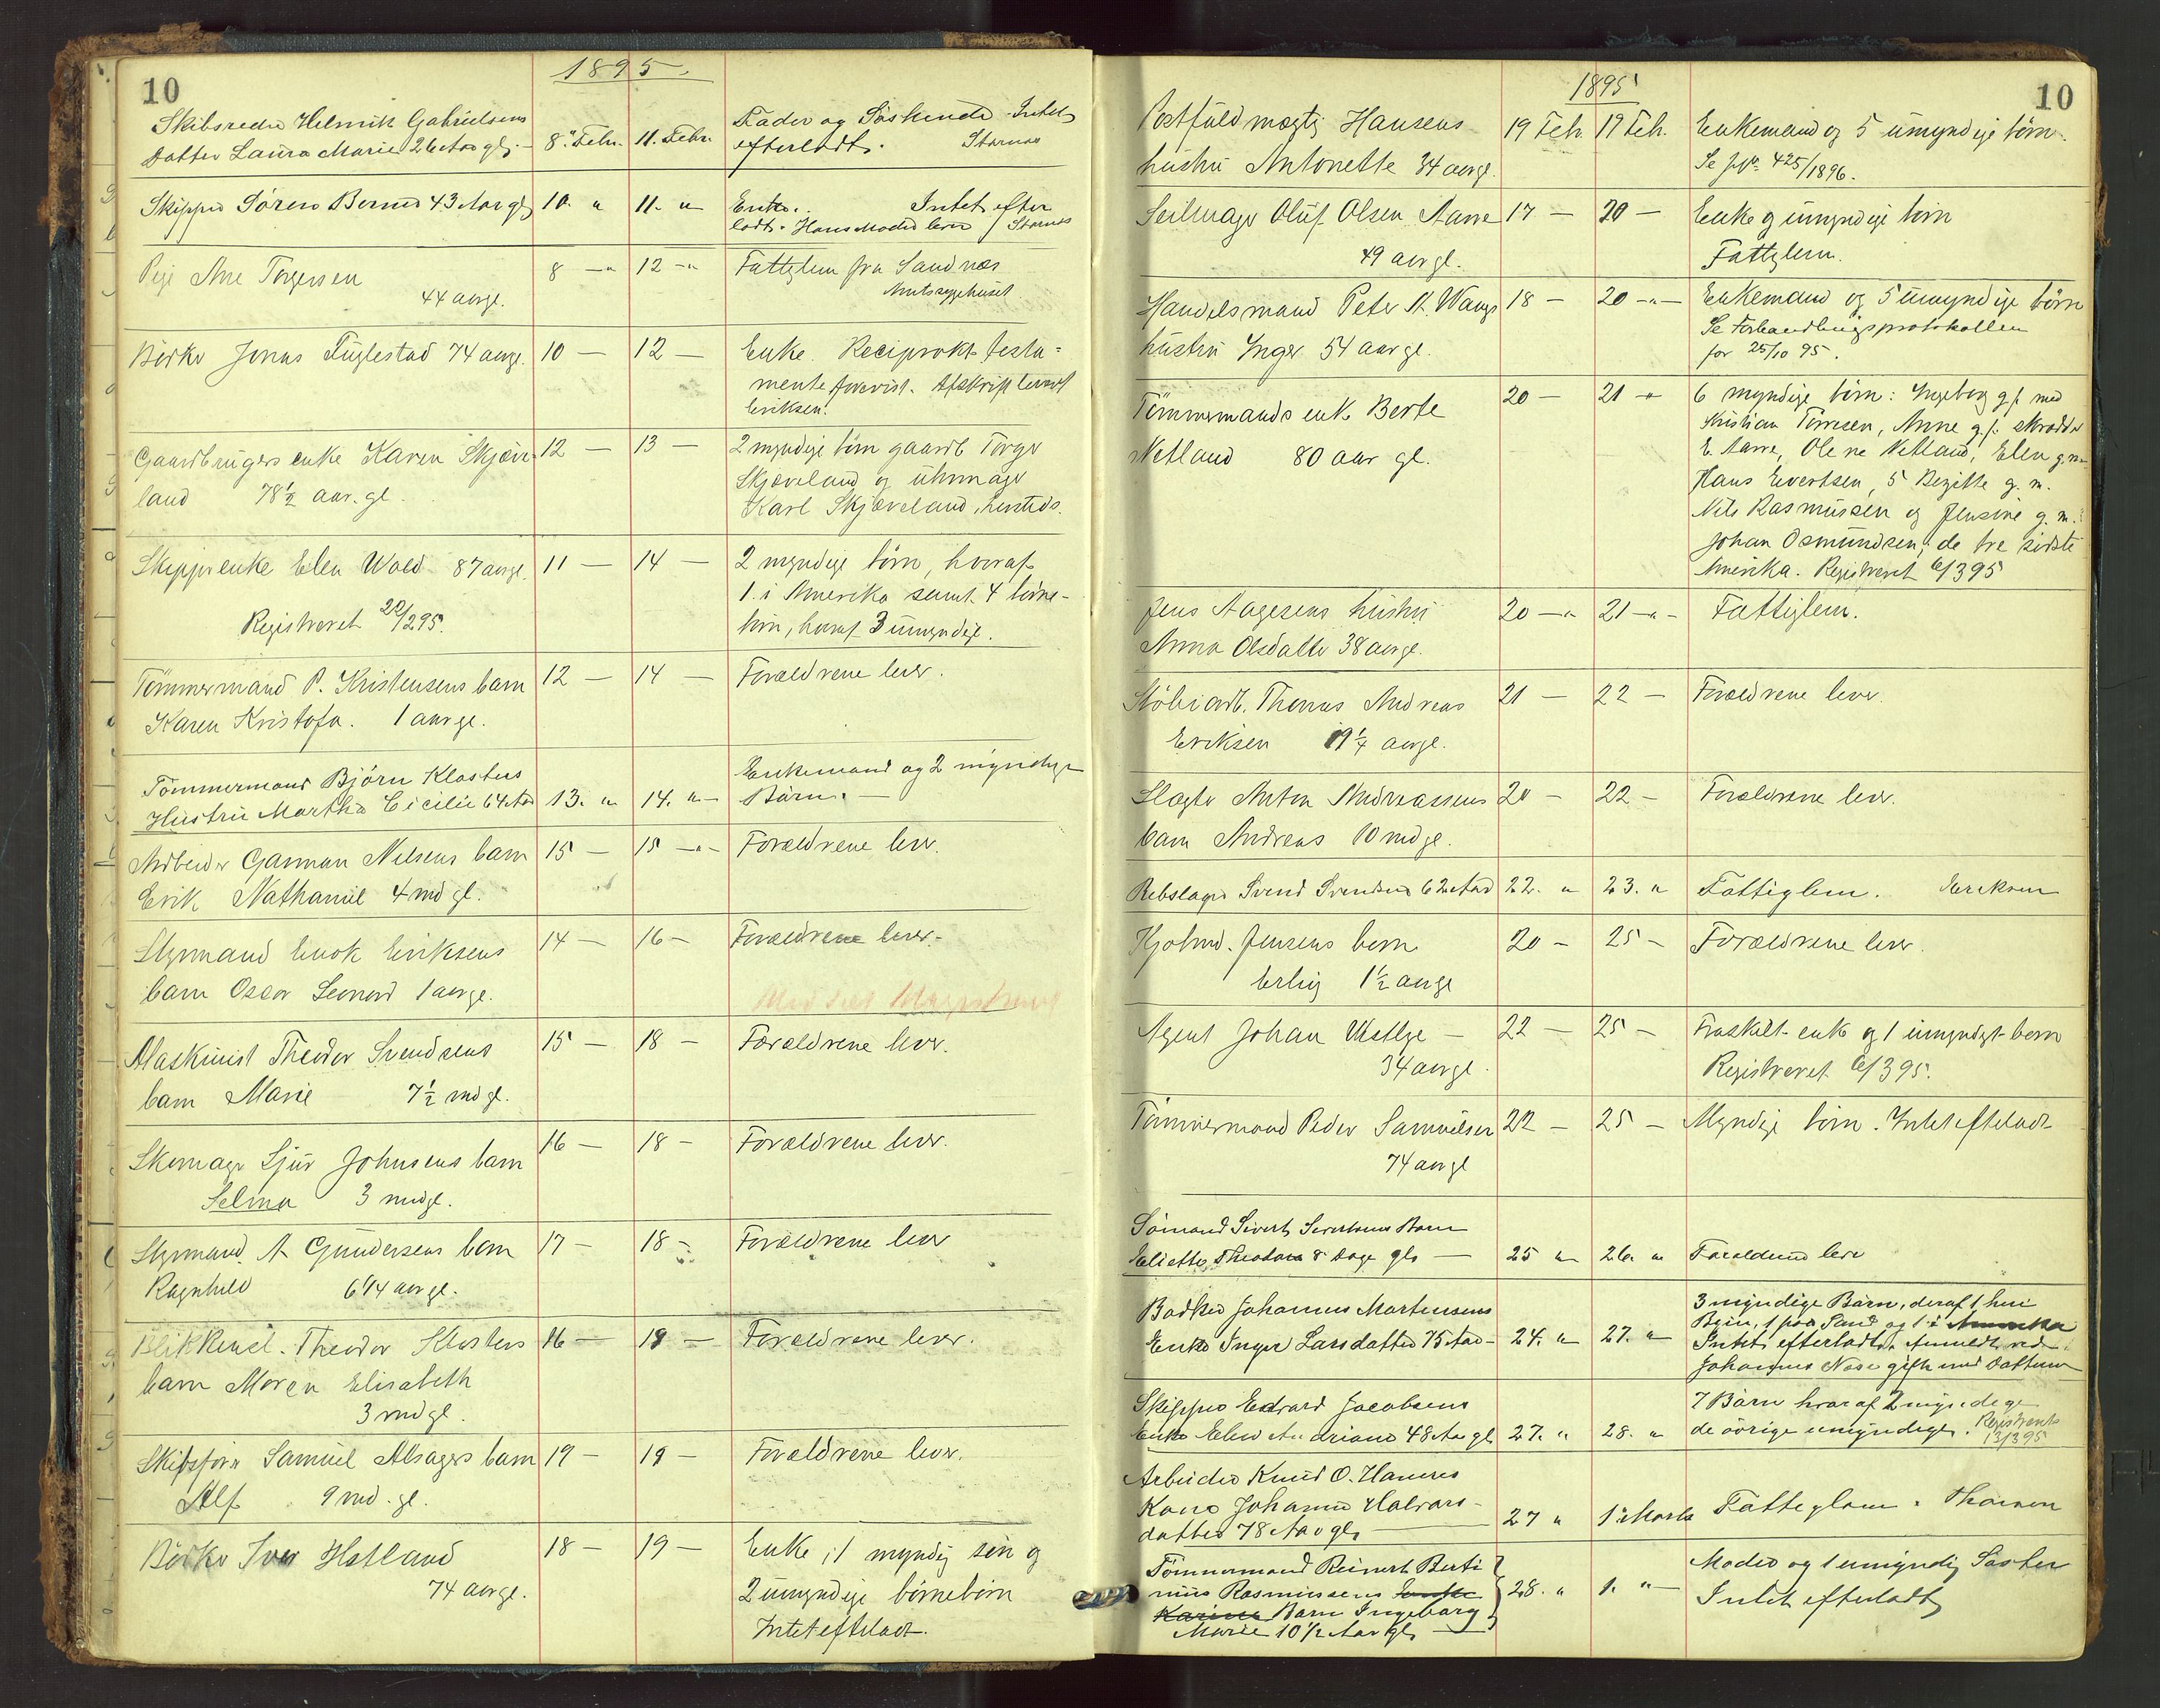 10
1895.
Skibsreder Helmik Gabrielsens
Datter Laura Marie 26 Aar gl. 8. Febr. 11. Febr. Fader og Søskende Intet
efterladt.
Skipper Sören Bernes 43 Aar gl 10. " 11. " Enke. Intet efter
ladt. Hans Moder lever
Pige Ane Torgersen 8 —" 12 —" Fattiglem fra Sandnæs
44 aar gl. Amtssygehuset
Bödker Jonas Fuglestad 74 aar gl. 10 — 12 — Enke. Reciprokt testa-
mente forevist. Afskrift leveret
Eriksen.
Gaardbrugers enke Karen Skjæve- 12 — 13 — 2 myndige börn gaardb. Torger
land 78½ aar. gl. Skjæveland og uhrmager
Karl Skjæveland, hersteds.
Skipper enke Elen Wold 87 aar gl. 11 — 14 — 2 myndige börn, hvoraf
1 i Amerika samt 4 börne-
Registreret 20/2 95. börn, hvoraf 3 umyndige.
Tömmermand P. Kristensens barn 12 — 14 — Forældrene lever.
Karen Kristofa. 1 aar gl.
Tömmermand Björn Klosters Enkemand og 2 myndige
Hustru Martha Cicilie 64 Aar 13. " 14. " — Börn. —
Arbeider Garman Nilsens barn 15 — 15 —"— Forældrene lever.
Erik Nathaniel 4 md gl.
Styrmand Enok Eriksens 14 — 16 — Forældrene lever.
barn Oscar Leonard 1 aar gl.
Maskinist Theodor Svendsens 15 — 18 — Forældrene lever.
barn Marie 7½ md gl.
Skomager Sjur Johnsens barn 16 — 18 — Forældrene lever.
Selma 3 md gl.
Styrmand A Gundersens barn 17 — 18 — Forældrene lever
Ragnhild 6 1/4 aar gl.
Blikkensl. Theodor Klosters 16 — 19 — Forældrene lever.
barn Maren Elisabeth
3 md gl.
Skibsförer Samuel Alsagers barn 17 — 19 — Forældrene lever.
Alf 9 md. gl.
Bödker Iver Hetland 18 — 19 — Enke, 1 myndig sön og
74 aar gl. 2 umyndige börnebörn
Intet efterladt.
1895
10
Postfuldmægtig Hansens 19 Feb. 19 Feb. Enkemand og 5 umyndige börn.
hustru Antonette 34 aar gl. Se 425/1896.
Seilmager Oluf Olsen Aarre 17 — 20 — Enke og umyndige börn
49 aar gl. Fattiglem.
Handelsmand Peter A. Waags 18 — 20 —"— Enkemand og 5 umyndige börn
hustru Inger 54 aar gl. Se Forhandlingsprotokollen
for 25/10 95.
Tömmermands enke Berte 20 — 21 —" 6 myndige börn: Ingeborg gf. med
Kristian Torresen, Anne g.f. skrædder
Netland 80 aar gl. E. Aarre, Olene Netland, Elen g.m.
Hans Evertsen, 5 Begitte g. m.
Nils Rasmussen og Jensine g. m.
Johan Osmundsen; de tre sidste
Amerika. Registreret 6/3 95
Jens Aagesens hustru 20 —" 21 —"— Fattiglem.
Anna Olsdatter 38 aar gl.
Stöberiarb. Thomas Andreas 21 — 22 — Forældrene lever.
Eriksen 19¼ aar gl.
Slagter Anton Andreassens 20 — 22 — Forældrene lever.
barn Andreas 10 md gl.
Rebslager Svend Svendsen 62 Aar 22. " 23. " Fattiglem. Eriksen
Kjøbmd. Jensens barn 20 — 25 — Forældrene lever.
Erling 1½ aar gl
Agent Johan Vestbye — 22 — 25 — Fraskilt enke og 1 umyndigt barn
34 aar gl. Registreret 6/3 95.
Tömmermand Peder Samuelsen 22 — 25 — Myndige börn. Intet efterladt
74 aar gl
Sömand Sivert Sivertsens Barn
Eliette Theodora 8 Dage gl. — 25 " 26. " Forældrene lever
Bödker Johannes Mortensens 3 myndige Börn, deraf 1 her i
Byen, 1 paa Sand og 1 i Amerika
Enke Inger Larsdatter 75 Aar — 24. " 27. " Intet efterladt. Anmeldt ved
Johannes Næse gift med Datteren
Skipper Edvard Jacobsens 7 Börn hvoraf 2 myndige
Enke Elen Andriane 48 Aar gl 27. " 28. " de övrige umyndige. Registreret
13/3 95
Arbeider Knud O. Hanens
Kone Johanne Halvars-
datter 78 Aar gl. — 27 " 1. Marts Fattiglem. Thorsen
Tömmermand Reinert Berti
nius Rasmussens 28. " 1. "— Moder og 1 umyndig Söster
Karine Barn Ingeborg Intet efterladt
Marie 10½ Aar gl. —